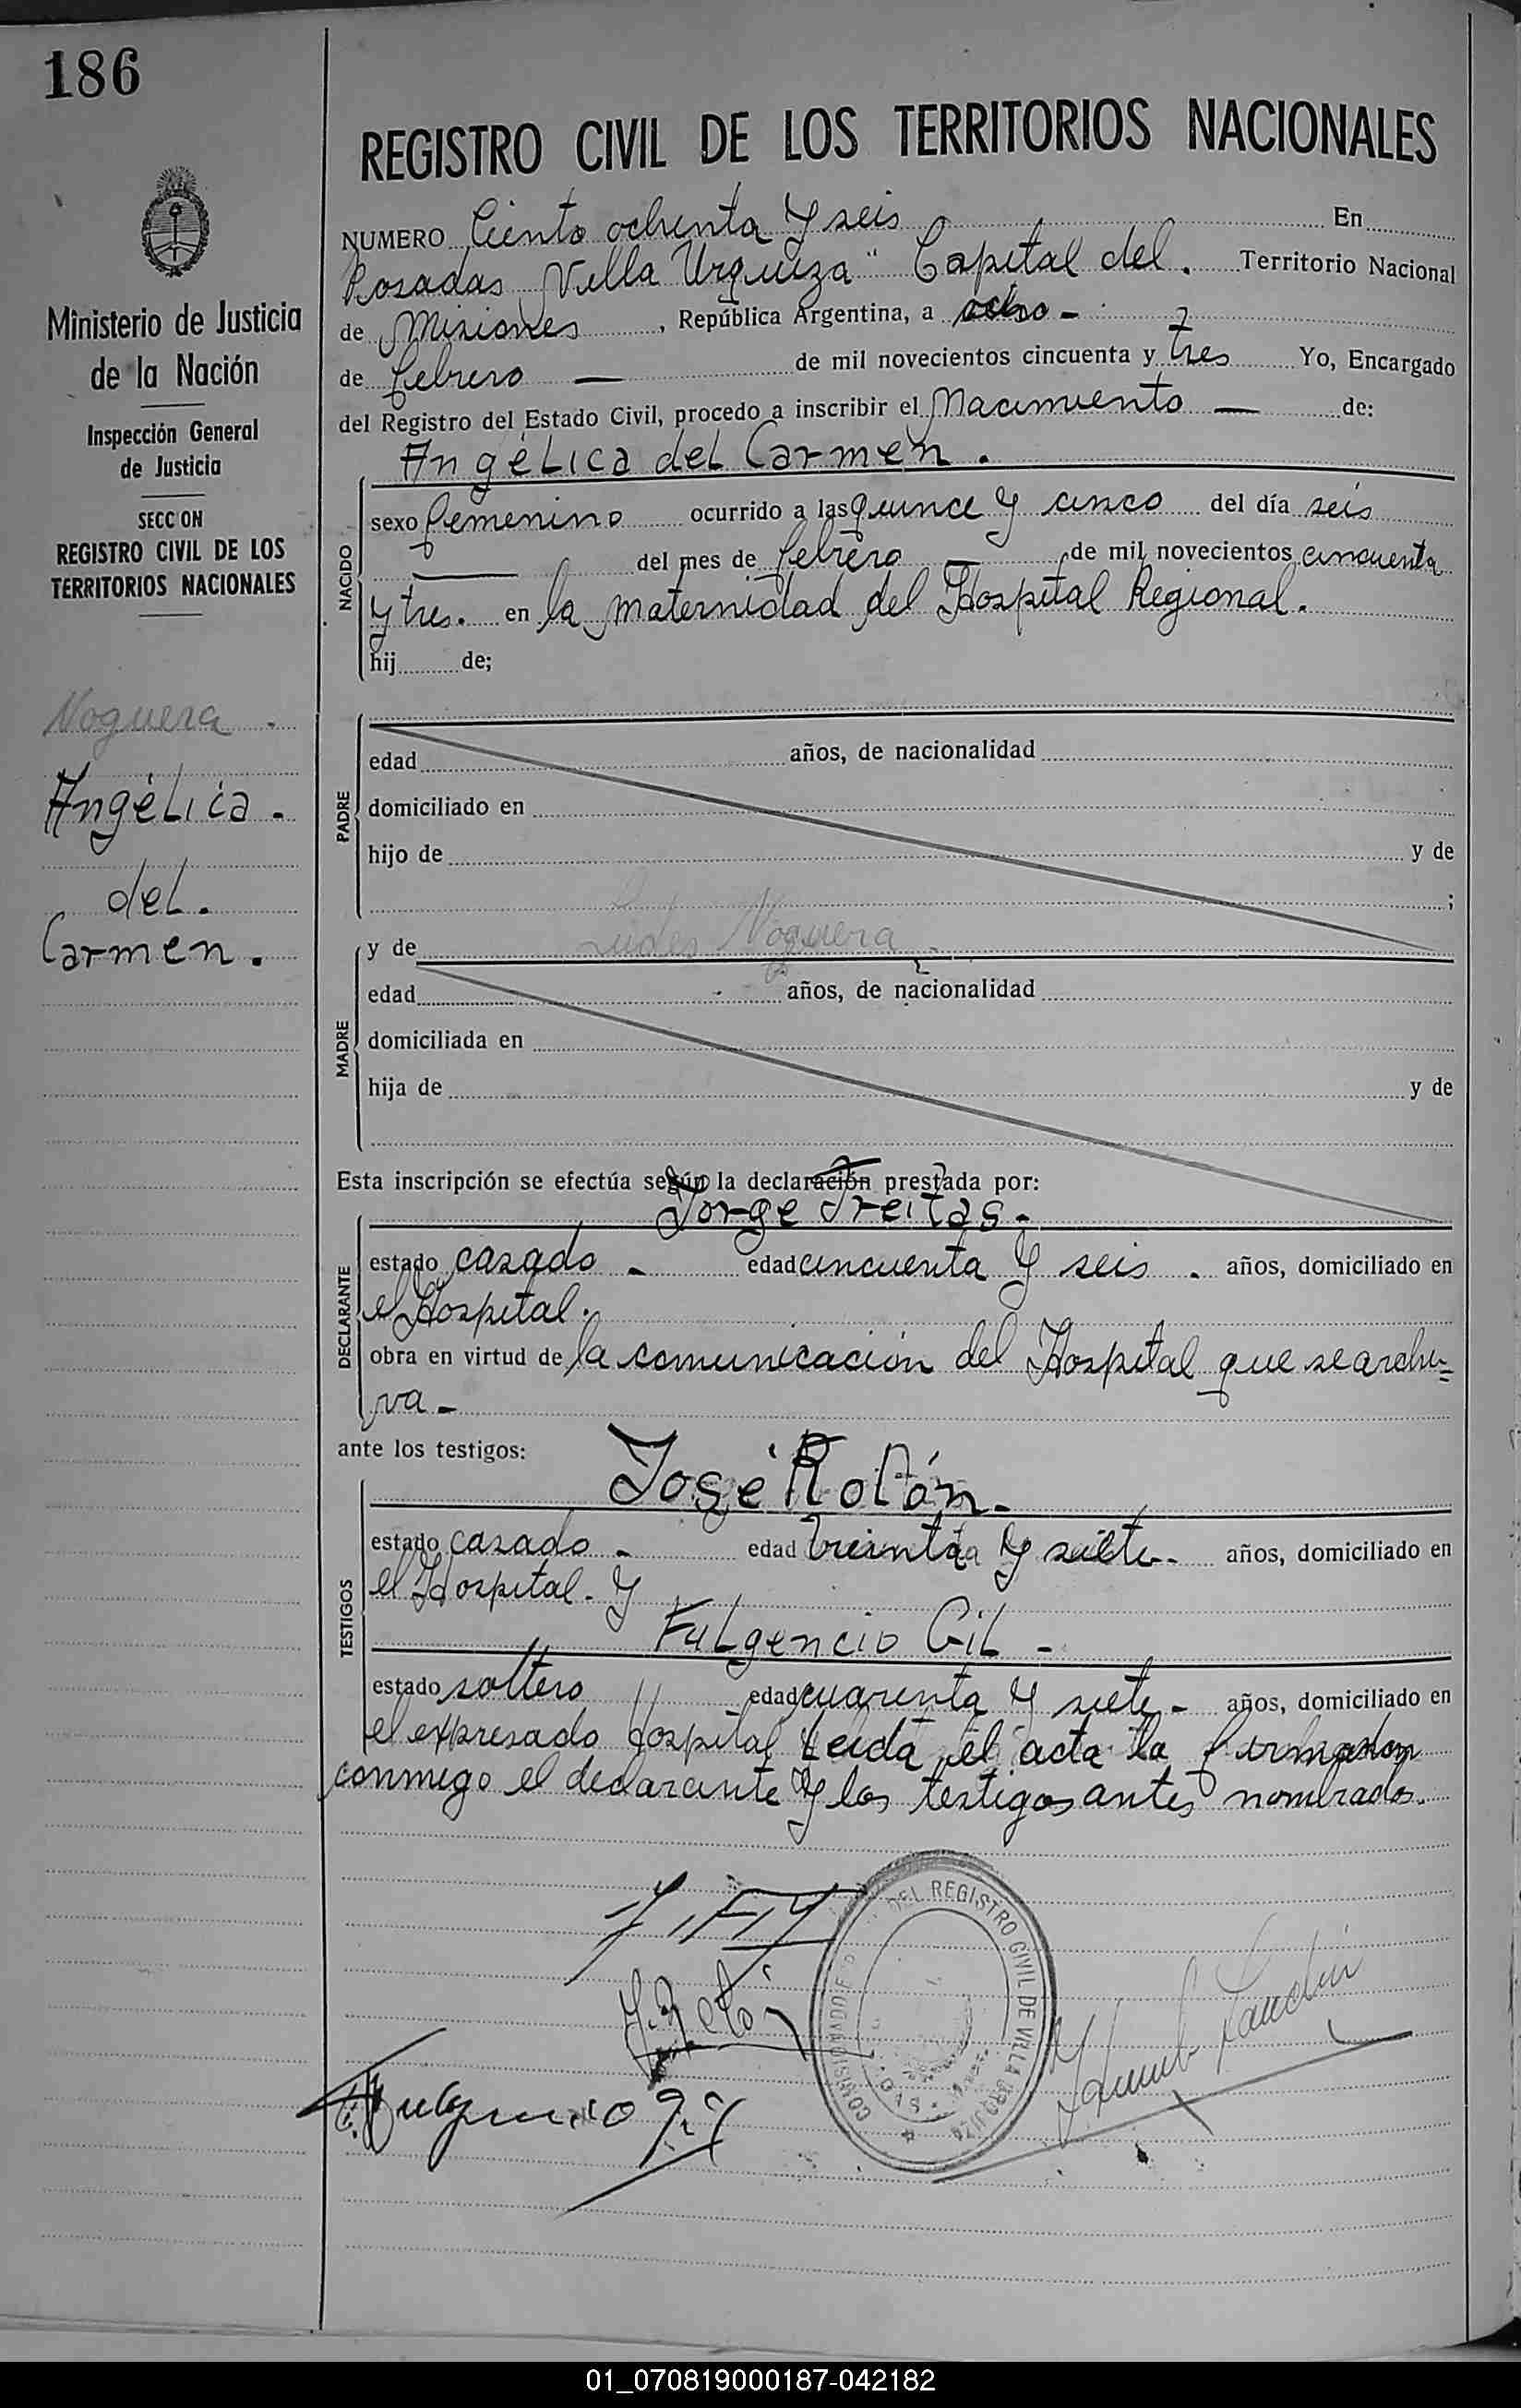 186
REGISTRO CIVIL DE LOS TERRITORIOS NACIONALES
Ministerio de Justicia
de la Nación
Inspección General
de Justicia
SECCION
REGISTRO CIVIL DE LOS
TERRITORIOS NACIONALES
Noguera
Angélica
del
Carmen.
NUMERO Ciento ochenta y seis En
Posadas "Villa Urquiza" Capital del Territorio Nacional
de Misiones, República Argentina, a ocho
de febrero — de mil novecientos cincuenta y tres Yo, Encargado
del Registro del Estado Civil, procedo a inscribir el Nacimiento — de:
Angélica del Carmen.
NACIDO
sexo femenino ocurrido a las quince y cinco del día seis
— del mes de febrero — de mil novecientos cincuenta
y tres. en la maternidad del Hospital Regional.
hij de;
PADRE
edad años, de nacionalidad
domiciliado en
hijo de y de
;
MADRE
y de Noguera
edad años, de nacionalidad
domiciliada en
hija de y de
Esta inscripción se efectúa según la declaración prestada por:
Jorge Freitas.
DECLARANTE
estado casado - edad cincuenta y seis. años, domiciliado en
el Hospital.
obra en virtud de la comunicación del Hospital que se archi=
va -
ante los testigos:
José Rolón.
TESTIGOS
estado casado - edad treinta y siete - años, domiciliado en
el Hospital. y
Fulgencio Gil -
estado soltero edad cuarenta y siete - años, domiciliado en
el expresado Hospital Leida el acta la firmaron
conmigo el declarante y los testigos antes nombrados.
DEL REGISTRO CIVIL DE VILLA URQUIZA
J. Rolón
Fulgencio Gil
01_070819000187-042182